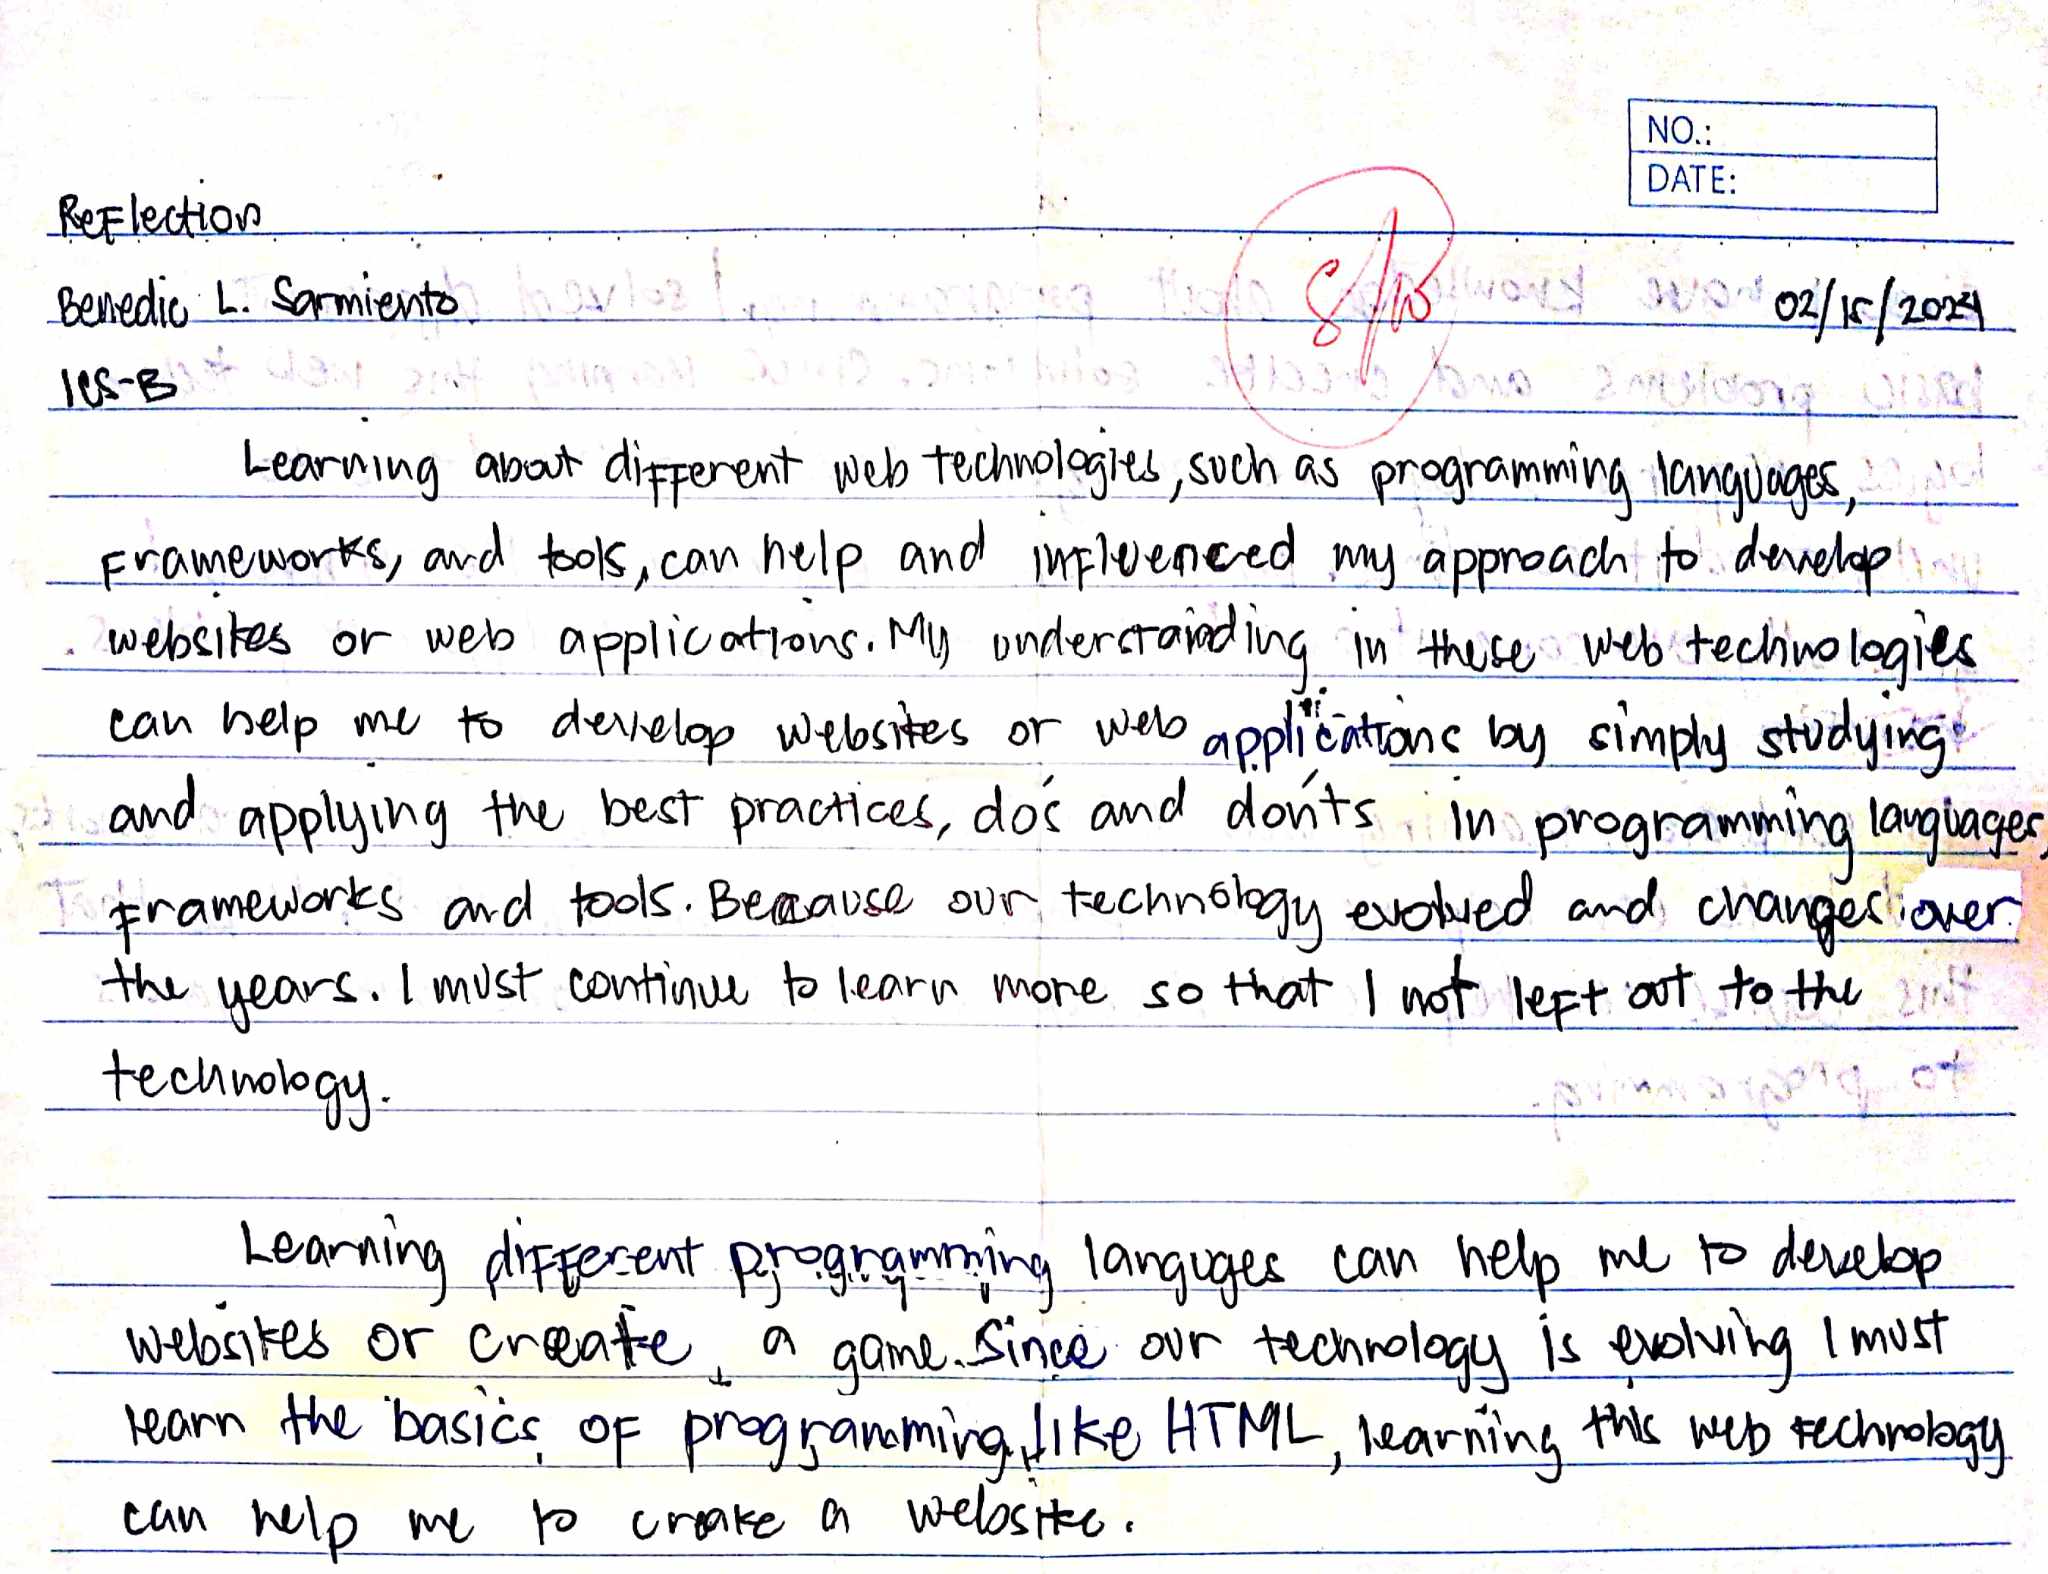 NO.:
DATE:
Reflection
8/10
Benedic L. Sarmiento 02/15/2024
1CS-B
Learning about different web technologies, such as programming languages,
frameworks, and tools, can help and influenced my approach to develop
websites or web applications. My understanding in these web technologies
can help me to develop websites or web applications by simply studying
and applying the best practices, do's and don'ts in programming languages,
frameworks and tools. Because our technology evolved and changes over
the years. I must continue to learn more so that I not left out to the
technology.
Learning different programming languges can help me to develop
websites or create a game. Since our technology is evolving I must
learn the basics of programming like HTML, learning this web technology
can help me to create a website.